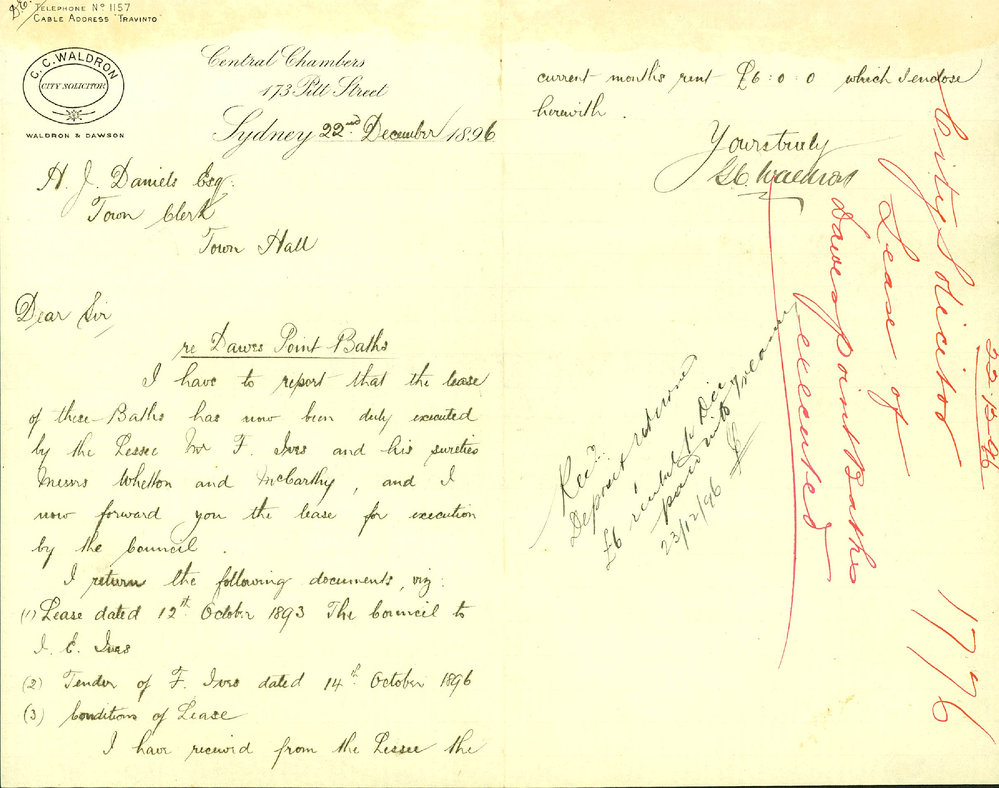 TELEPHONE Nº 1157
CABLE ADDRESS "TRAVINTO"
C. C. WALDRON
CITY SOLICITOR
WALDRON & DAWSON
Central Chambers
173 Pitt Street
Sydney 22nd December 1896
H. J. Daniels Esq.
Town Clerk
Town Hall
Dear Sir
re Dawes Point Baths
I have to report that the lease
of these Baths has now been duly executed
by the Lessee Mr F. Ives and his sureties
Messrs Whelton and McCarthy, and I
now forward you the lease for execution
by the Council.
I return the following documents, viz:
(1) Lease dated 12th October 1893 The Council to
I. E. Ives
(2) Tender of F. Ives dated 14th October 1896
(3) Conditions of Lease
I have received from the Lessee the
current month's rent £6:0:0 which I enclose
herewith.
Yours truly
Waldron
Recd.
Deposit
£6 rental Dec
paid into Treasury
23/12/96
City Solicitor
Lease of
Dawes point Baths
executed
22.12.96
1776